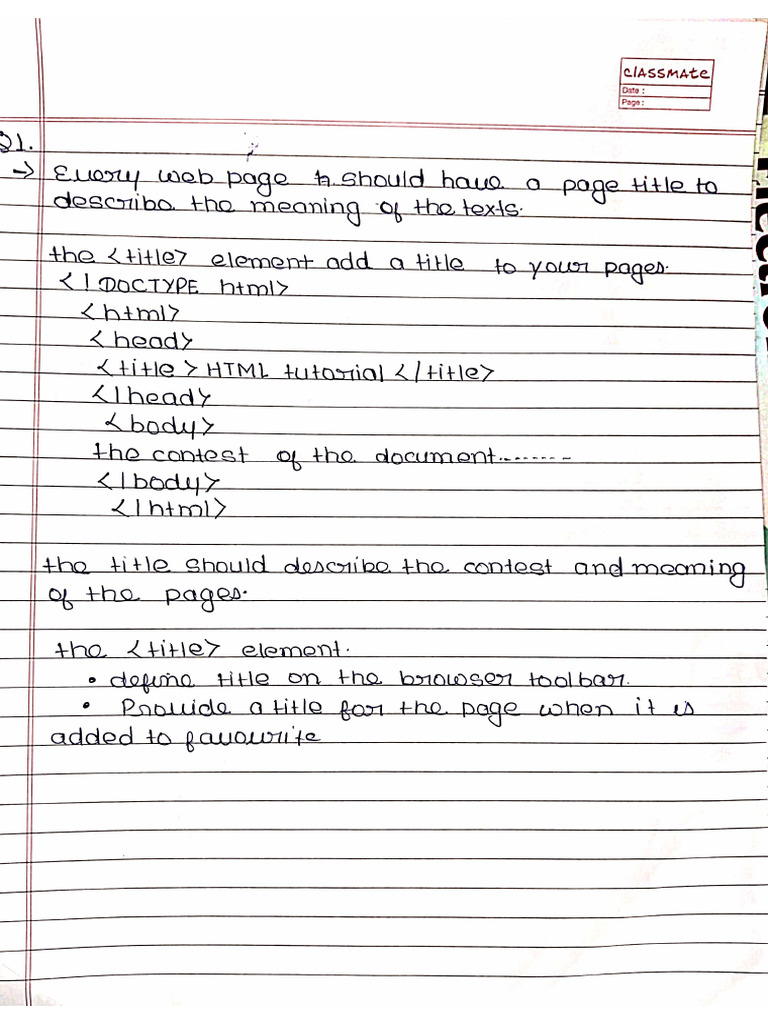 classmate
Date :
Page :
Q1.
→ Every web page should have a page title to
describe the meaning of the texts.
the <title> element add a title to your pages.
<!DOCTYPE html>
<html>
<head>
<title> HTML tutorial </title>
</head>
<body>
the contest of the document........
</body>
</html>
the title should describe the contest and meaning
of the pages.
the <title> element.
• define title on the browser toolbar.
• Provide a title for the page when it is
added to favourite